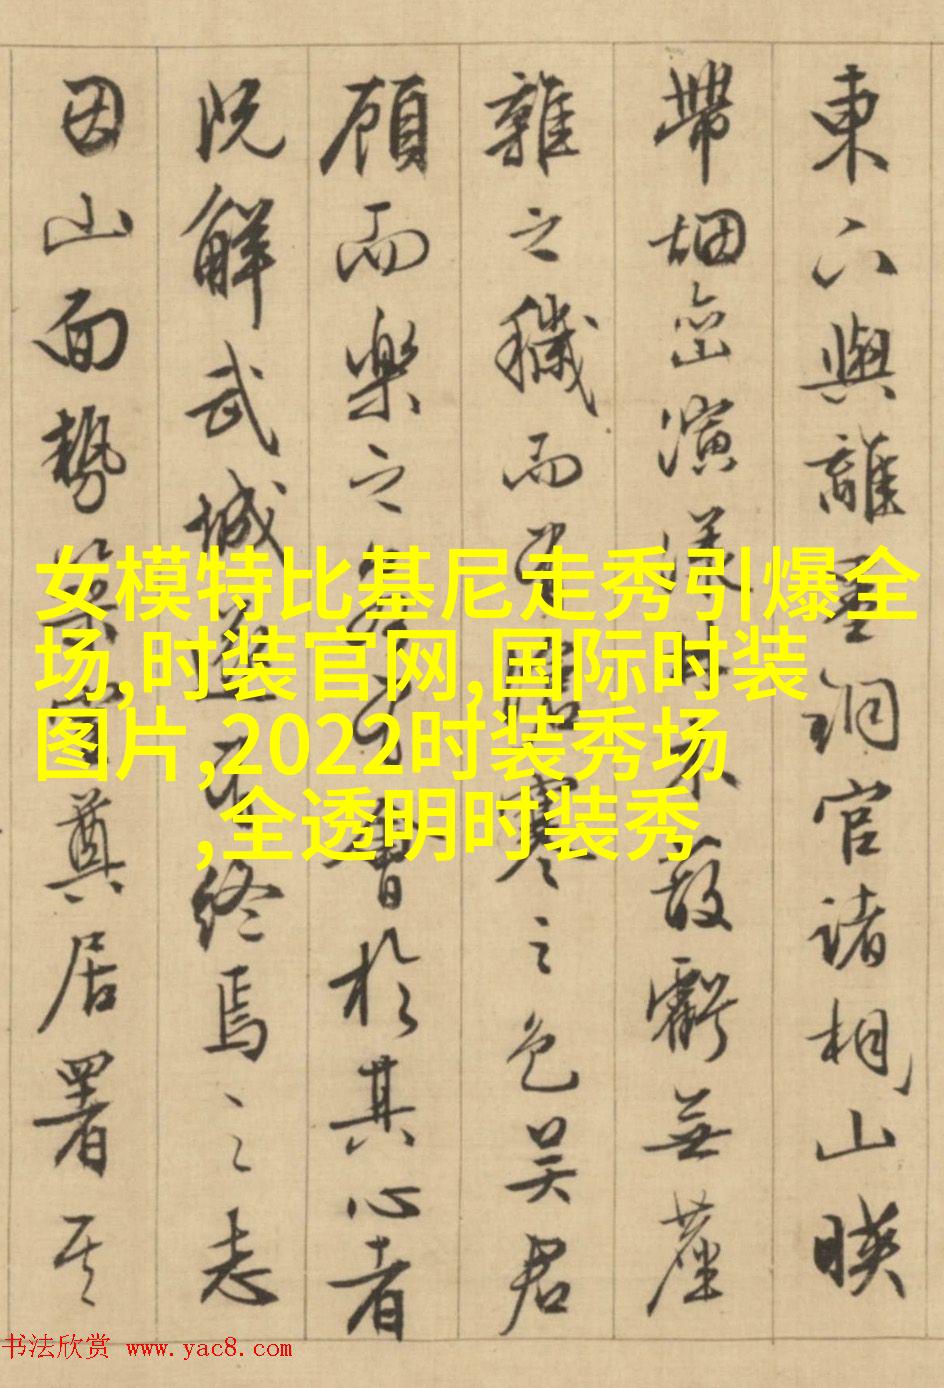 東六與離墨銅官諸相山暎
帶烟巒演漾不蔽虧無塵
雜之穢而寒之色吴君
顧而樂之會於其心者
既解武城遂終焉之志
因山面勢築奠居署其
女模特比基尼走秀引爆全
场,时装官网,国际时装
图片,2022时装秀场
,全透明时装秀
书法欣赏 www.yac8.com